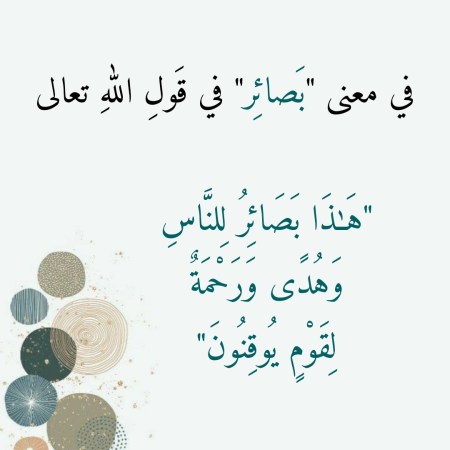 في معنى "بَصائِر" في قَولِ اللهِ تعالى
"هَٰذَا بَصَائِرُ لِلنَّاسِ
وَهُدًى وَرَحْمَةٌ
لِقَوْمٍ يُوقِنُونَ"